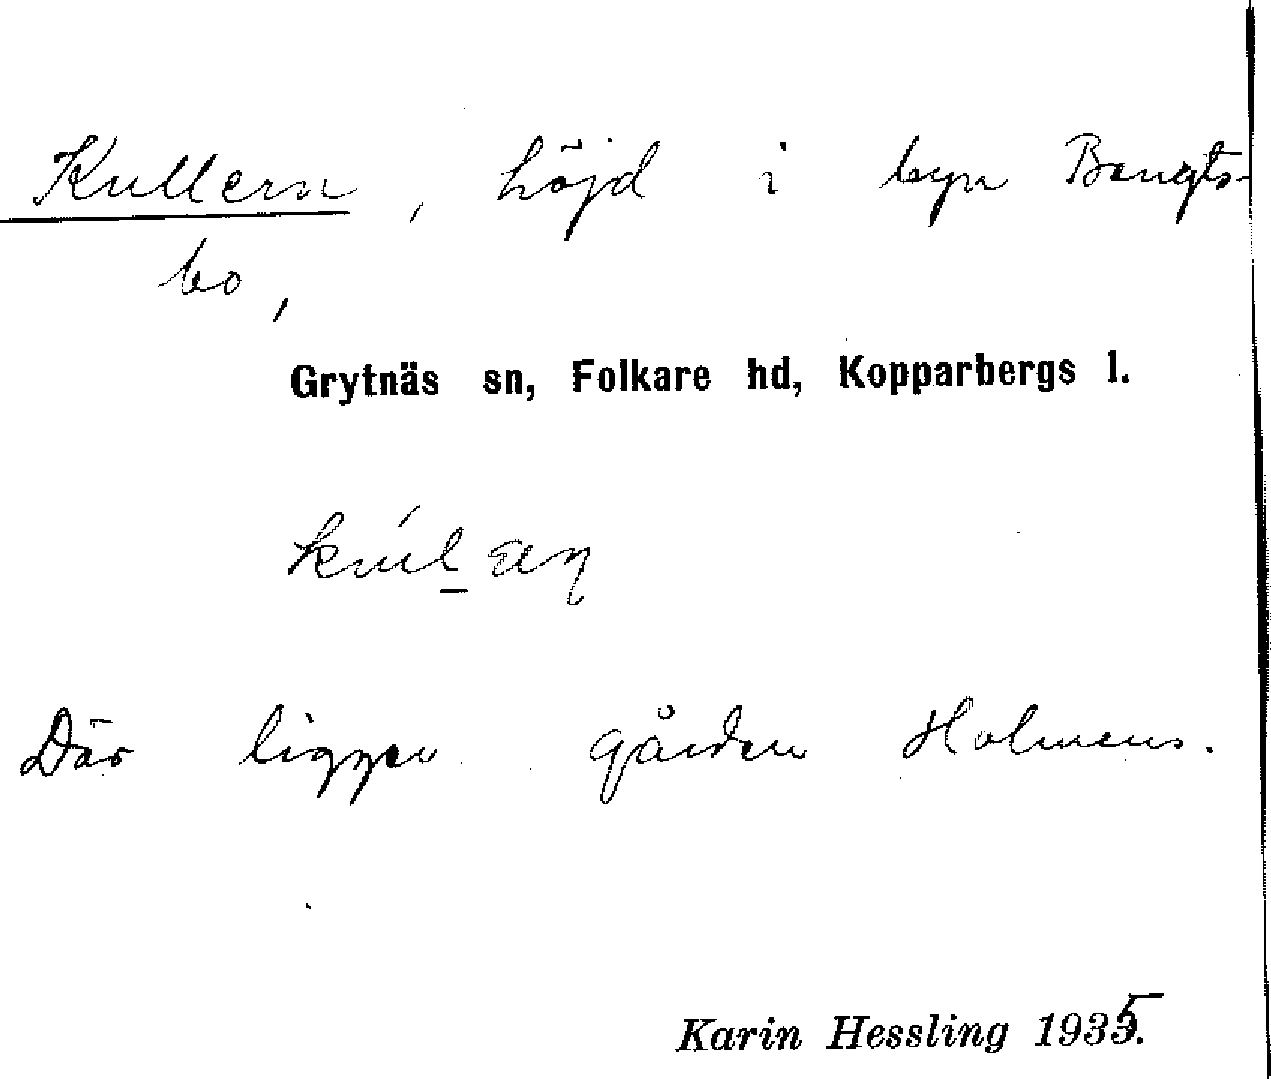 Kullern, höjd i byn Bengts-
bo,
Grytnäs sn, Folkare hd, Kopparbergs l.
Där ligger gården Holmens.
Karin Hessling 1935.